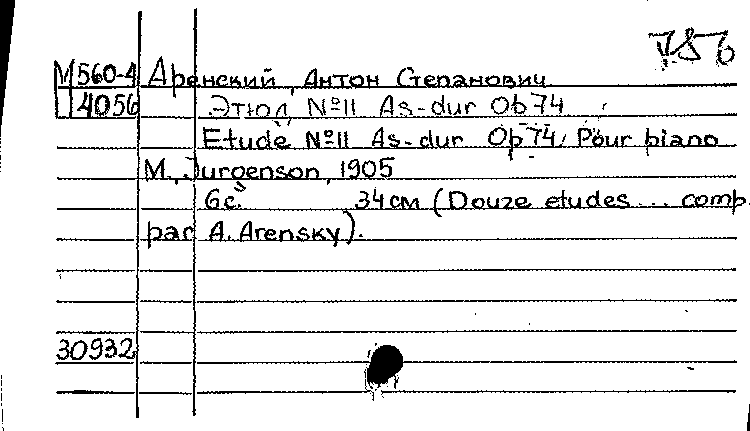 756
М 560-4 Аренский, Антон Степанович
4056 Этюд №11 As-dur Ob 74
Etude №11 As-dur Op 74, Pour piano
M., Jurgenson, 1905
6с. 34см (Douze etudes ... comp.
par A. Arensky).
30932